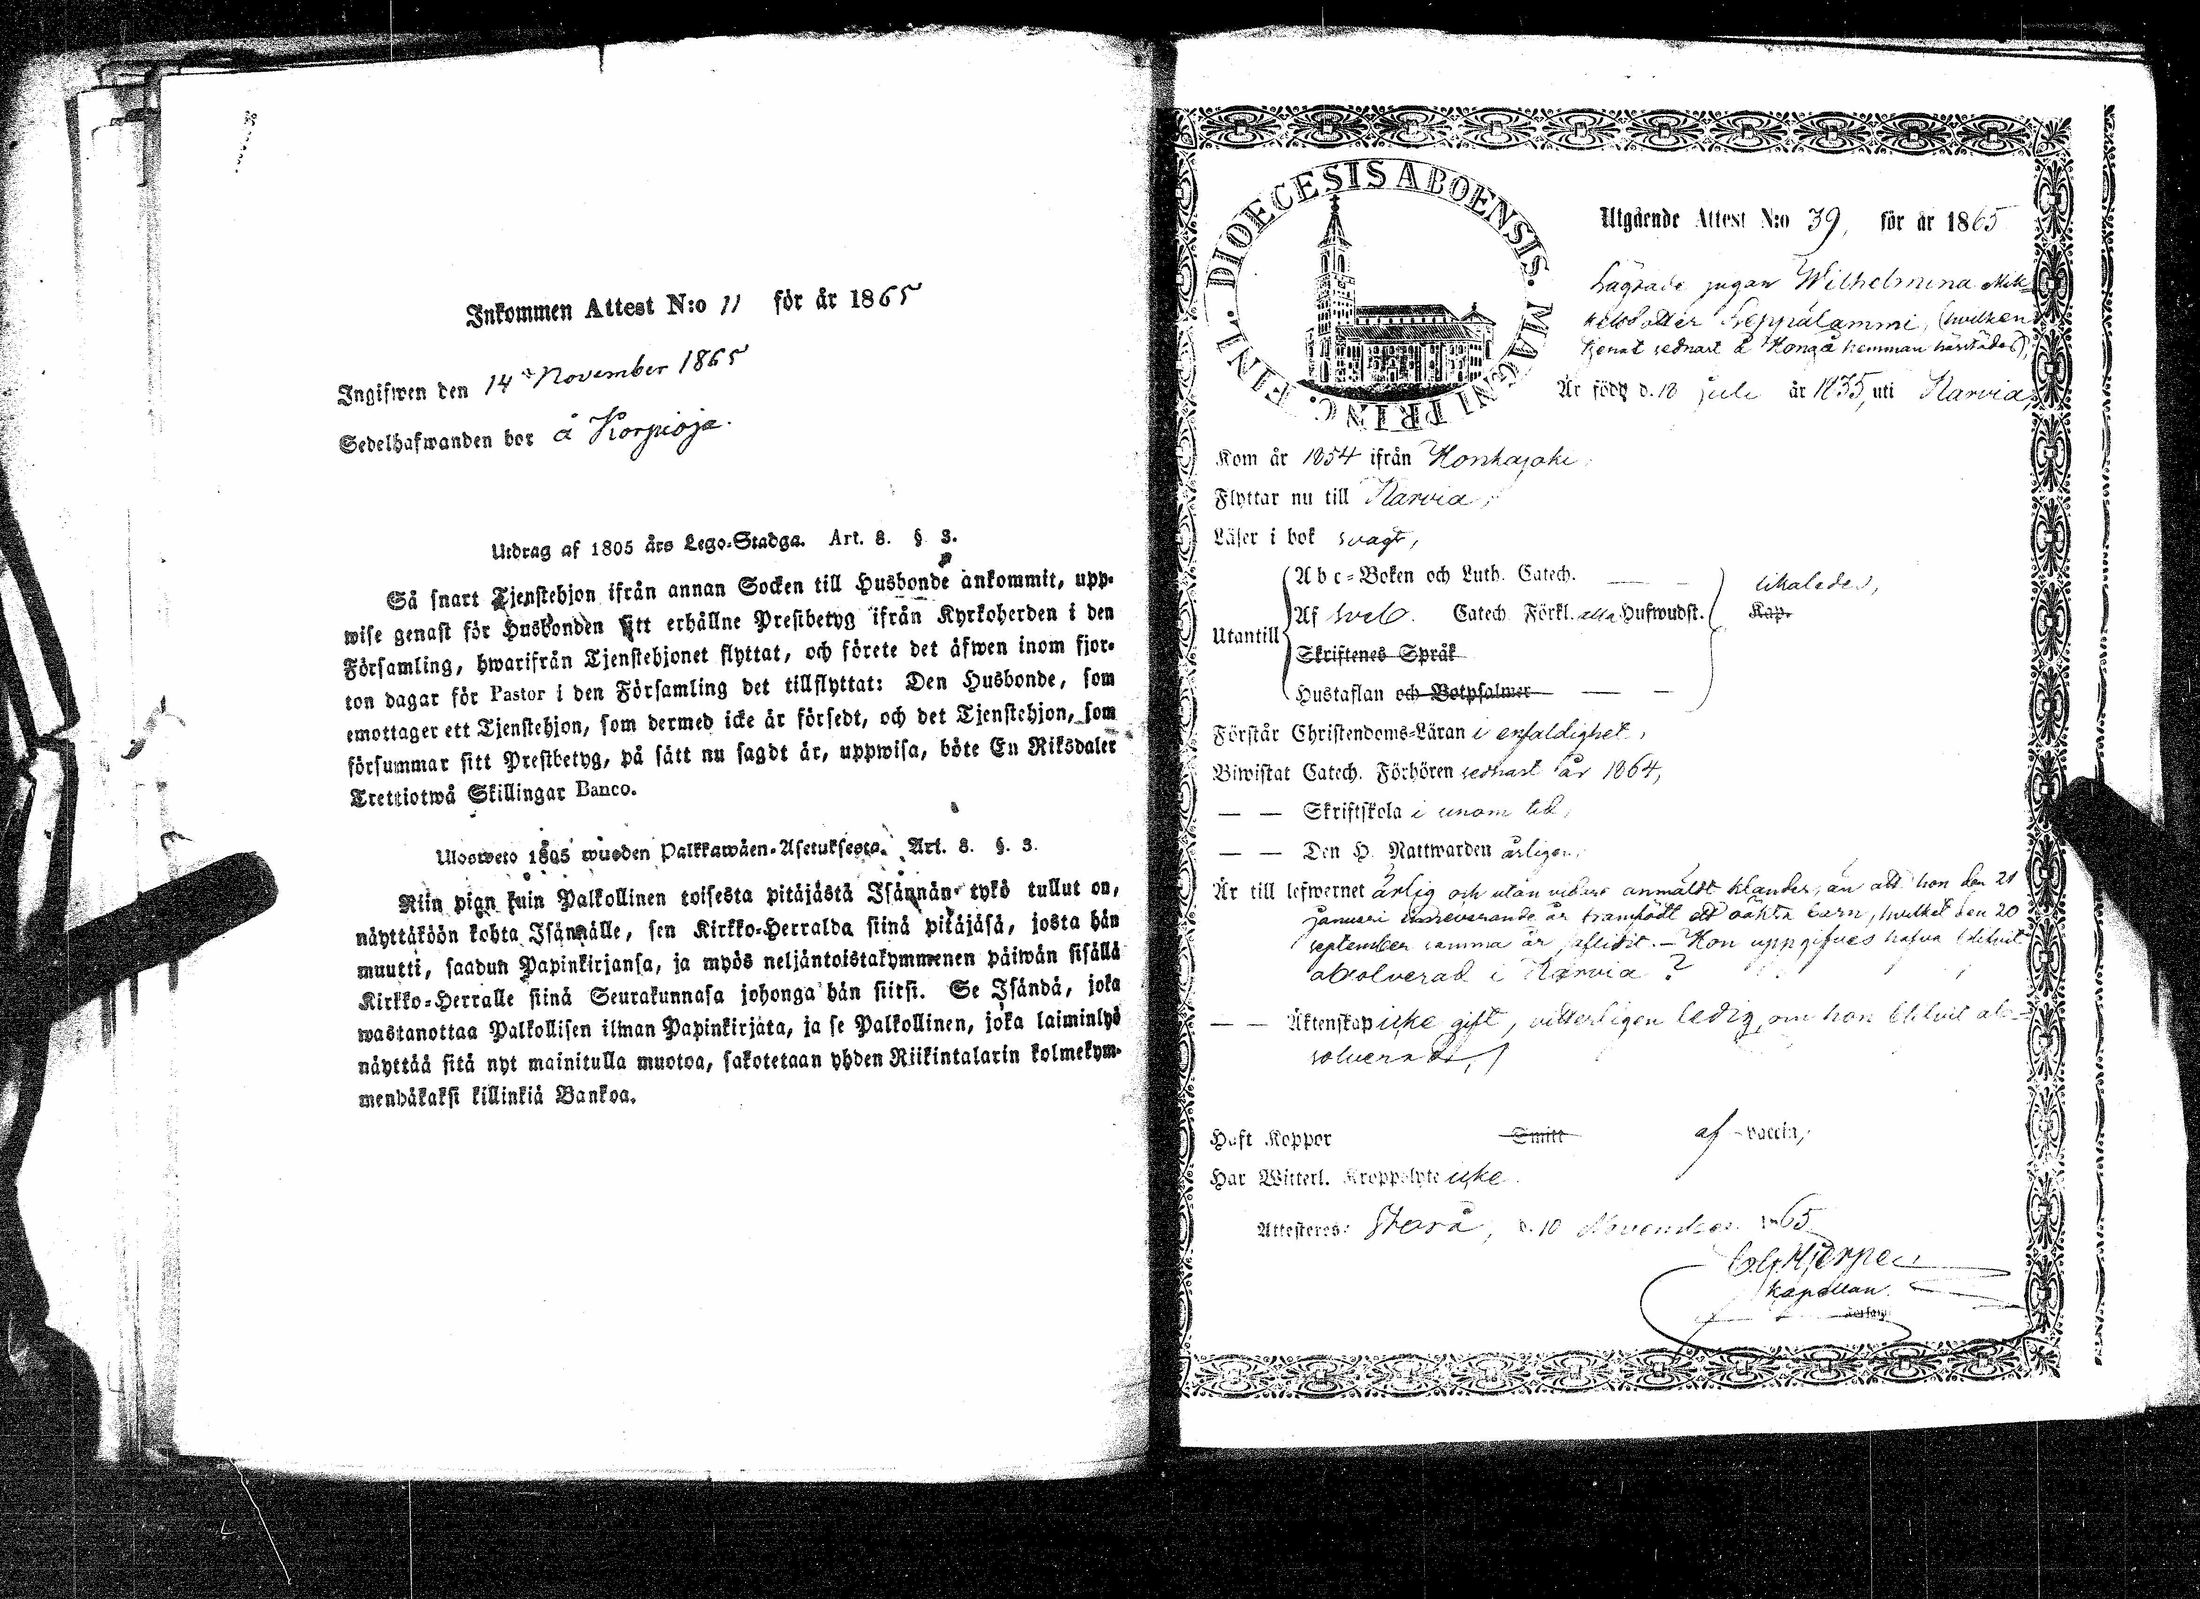 Inkommen Attest N:o 11 för år 1865
Ingifwen den 14de November 1865
Sedelhafwanden bor å Korpioja.
Utdrag af 1805 års Lego-Stadga. Art. 8. § 3.
Så snart Tjenstehjon ifrån annan Socken till Husbonde ankommit, upp-
wise genast för Husbonden sitt erhållne Prestbetyg ifrån Kyrkoherden i den
Församling, hwarifrån Tjenstehjonet flyttat, och förete det äfwen inom fjor-
ton dagar för Pastor i den Församling det tillflyttat: Den Husbonde, som
emottager ett Tjenstehjon, som dermed icke är försedt, och det Tjenstehjon, som
försummar sitt Prestbetyg, på sätt nu sagdt är, uppwisa, böte En Riksdaler
Trettiotwå Skillingar Banco.
Uloswето 1805 wuoden Palkkawäen-Asetuksesta. Art. 8. §. 3.
Niin pian kuin Palkollinen toisesta pitäjästä Isännän tykö tullut on,
näyttäköön kohta Isännälle, sen Kirkko-Herralda siinä pitäjäsä, josta hän
muutti, saadun Papinkirjansa, ja myös neljäntoistakymmenen päiwän sisällä
Kirkko-Herralle siinä Seurakunnasa johonga hän siitsi. Se Isändä, joka
wastanottaa Palkollisen ilman Papinkirjata, ja se Palkollinen, joka laiminlyö
näyttää sitä nyt mainitulla muotoa, sakotetaan yhden Riikintalarin kolmekym-
mendäkaksi killinkiä Bankoa.
DIOECESIS ABOENSIS. MAGNI PRINC. FINL.
Utgående Attest N:o 39, för år 1865
Lägrade pigan Wilhelmina Mik-
kelsdotter Seppälammi, (hvilken
tjenat sednast å Honga hemman härstädes),
Är född d. 18 juli år 1835, uti Karvia,
Kom år 1854 ifrån Honkajoki,
Flyttar nu till Karvia,
Läser i bok svagt,
Utantill
Abc-Boken och Luth. Catech. — — likaledes,
Af Sveb. Catech. Förkl. alla Hufwudst. Kap.
Skriftenes Språk
Hustaflan och Botpsalmer — —
Förstår Christendoms-Läran i enfaldighet,
Biwistat Catech. Förhören sednast år 1864,
— — Skriftskola i unom tid,
— — Den H. Nattwarden årligen,
Är till lefwernet ärlig och utan vidare anmäldt klander, än att hon den 21
januari innevarande år framfödt ett oäkta barn, hvilket den 20
september samma år aflidit. – Hon uppgifves hafva blifvit
absolverad i Karvia?
— — Äktenskap icke gift, vitterligen ledig, om hon blifvit ab-
solverad,
Haft Koppor Smitt af vaccin,
Har Witterl. Kroppslyte icke.
Attesteras: Storå, d. 10 November 1865
Hjerpe
Kapellan.